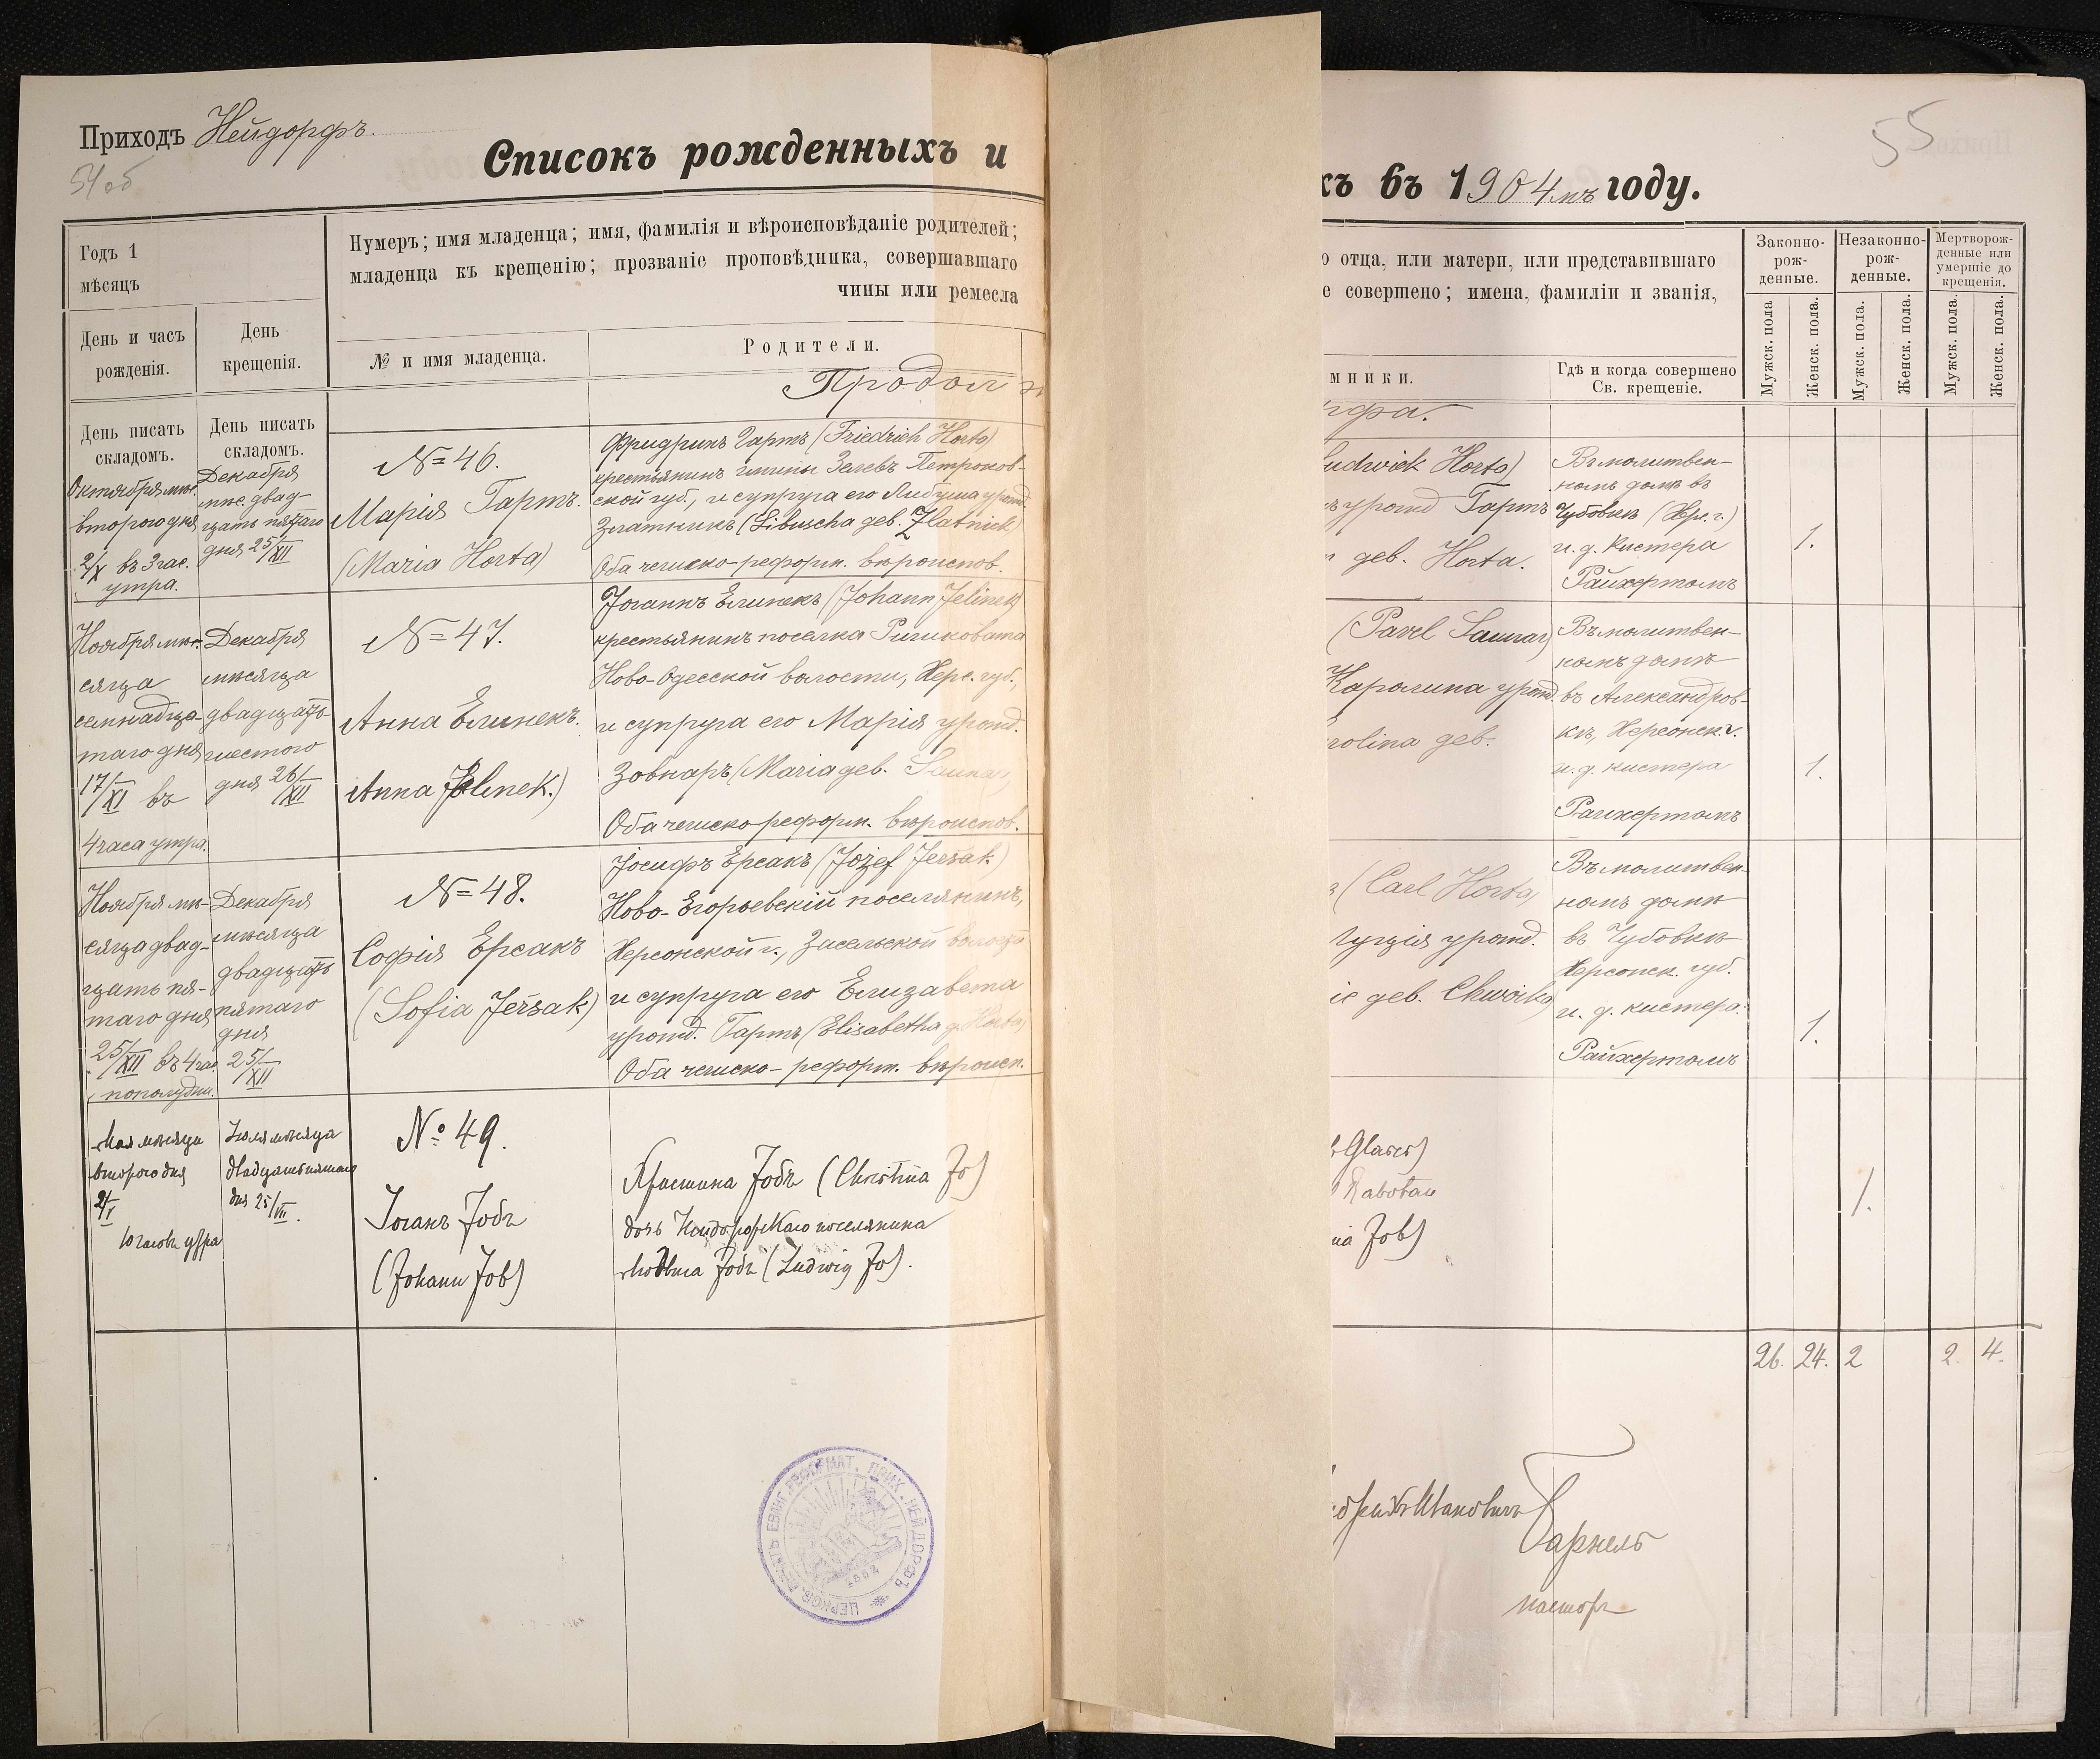 Приходъ Нейдорфъ.
54 об
Списокъ рожденныхъ и
Годъ 1
мѣсяцъ
Нумеръ; имя младенца; имя, фамилія и вѣроисповѣданіе родителей;
младенца къ крещенію; прозваніе проповѣдника, совершавшаго
чины или ремесла
День и часъ
рожденія.
День
крещенія.
№ и имя младенца.
Родители.
Продол
День писать
складомъ.
День писать
складомъ.
Октября мѣс.
второго дня
2/X въ 3 час.
утра.
Декабря
мѣс. двад-
цать пятаго
дня 25/XII
№ 46.
Марія Гартъ.
(Maria Horta)
Фридрихъ Гартъ (Friedrich Horta)
крестьянинъ гмины Зелевъ Петроков-
ской губ., и супруга его Либуша урожд.
Златникъ (Libuscha geb. Zlatnick)
Оба чешско-реформ. вѣроиспов.
Ноября мѣ-
сяца
семнадца-
таго дня
17/XI въ
4 часа утра.
Декабря
мѣсяца
двадцать
шестого
дня 26/XII
№ 47.
Анна Елинекъ.
Anna Jelinek.)
Іоганнъ Елинекъ (Johann Jelinek)
крестьянинъ поселка
Ново-Одесской волости, Херс. губ.,
и супруга его Марія урожд.
Зовнаръ (Maria geb.
Оба чешско реформ. вѣроиспов.
Ноября мѣ-
сяца двад-
цать пя-
таго дня
25/XII въ 4 час.
пополудни.
Декабря
мѣсяца
двадцать
пятаго
дня
25/XII
№ 48.
Софія Ерсакъ
(Sofia Jeršak)
Іосифъ Ерсакъ (Jozef Jeršak)
Ново-Егорьевскій поселянинъ,
Херсонской г., Засельской волости
и супруга его Елизавета
урожд. Гартъ (Elisabetha g. Horta)
Оба чешско-реформ. вѣроисп.
Мая мѣсяца
второго дня
2/V
10 часовъ утра
Іюля мѣсяца
двадцать пятаго
дня 25/VII.
№ 49.
Іоганъ Іобъ
(Johann Job)
Христина Іобъ (Christina Jo)
дочь Нейдорфскаго поселянина
Іобъ (Ludwig Jo).
ЦЕРКОВ. ПЕЧАТЬ ЕВАНГ. РЕФОРМАТ. ПРИХ. НЕЙДОРФЪ
55
хъ въ 1904мъ году.
о отца, или матери, или представившаго
е совершено; имена, фамиліи и званія,
мники.
Гдѣ и когда совершено
Св. крещеніе.
Законно-
рож-
денные.
Незаконно-
рож-
денные.
Мертворож-
денные или
умершіе до
крещенія.
Мужск. пола
Женск. пола.
Мужск. пола.
Женск. пола.
Мужск. пола.
Женск. пола.
рфа.
Ludwick Horta)
урожд Гартъ
geb. Horta.
Въ молитвен-
номъ домѣ въ
Чубовкѣ (Хер. г.)
и. д. Кистера
Райхертомъ
1.
(Pavel Saunar)
Каролина урожд.
rolina geb.
Въ молитвен-
номъ домѣ
въ Александров-
кѣ, Херсонск. г.
и. д. кистера
Райхертомъ
1.
(Carl Horta)
урожд.
ie geb. Chwoika)
Въ молитвен-
номъ домѣ
въ Чубовкѣ
Херсонск. губ.
и. д. кистера.
Райхертомъ
1.
Glaser)
Job)
1.
26. 24. 2 2. 4.
Ивановичъ
Барнель
пасторъ